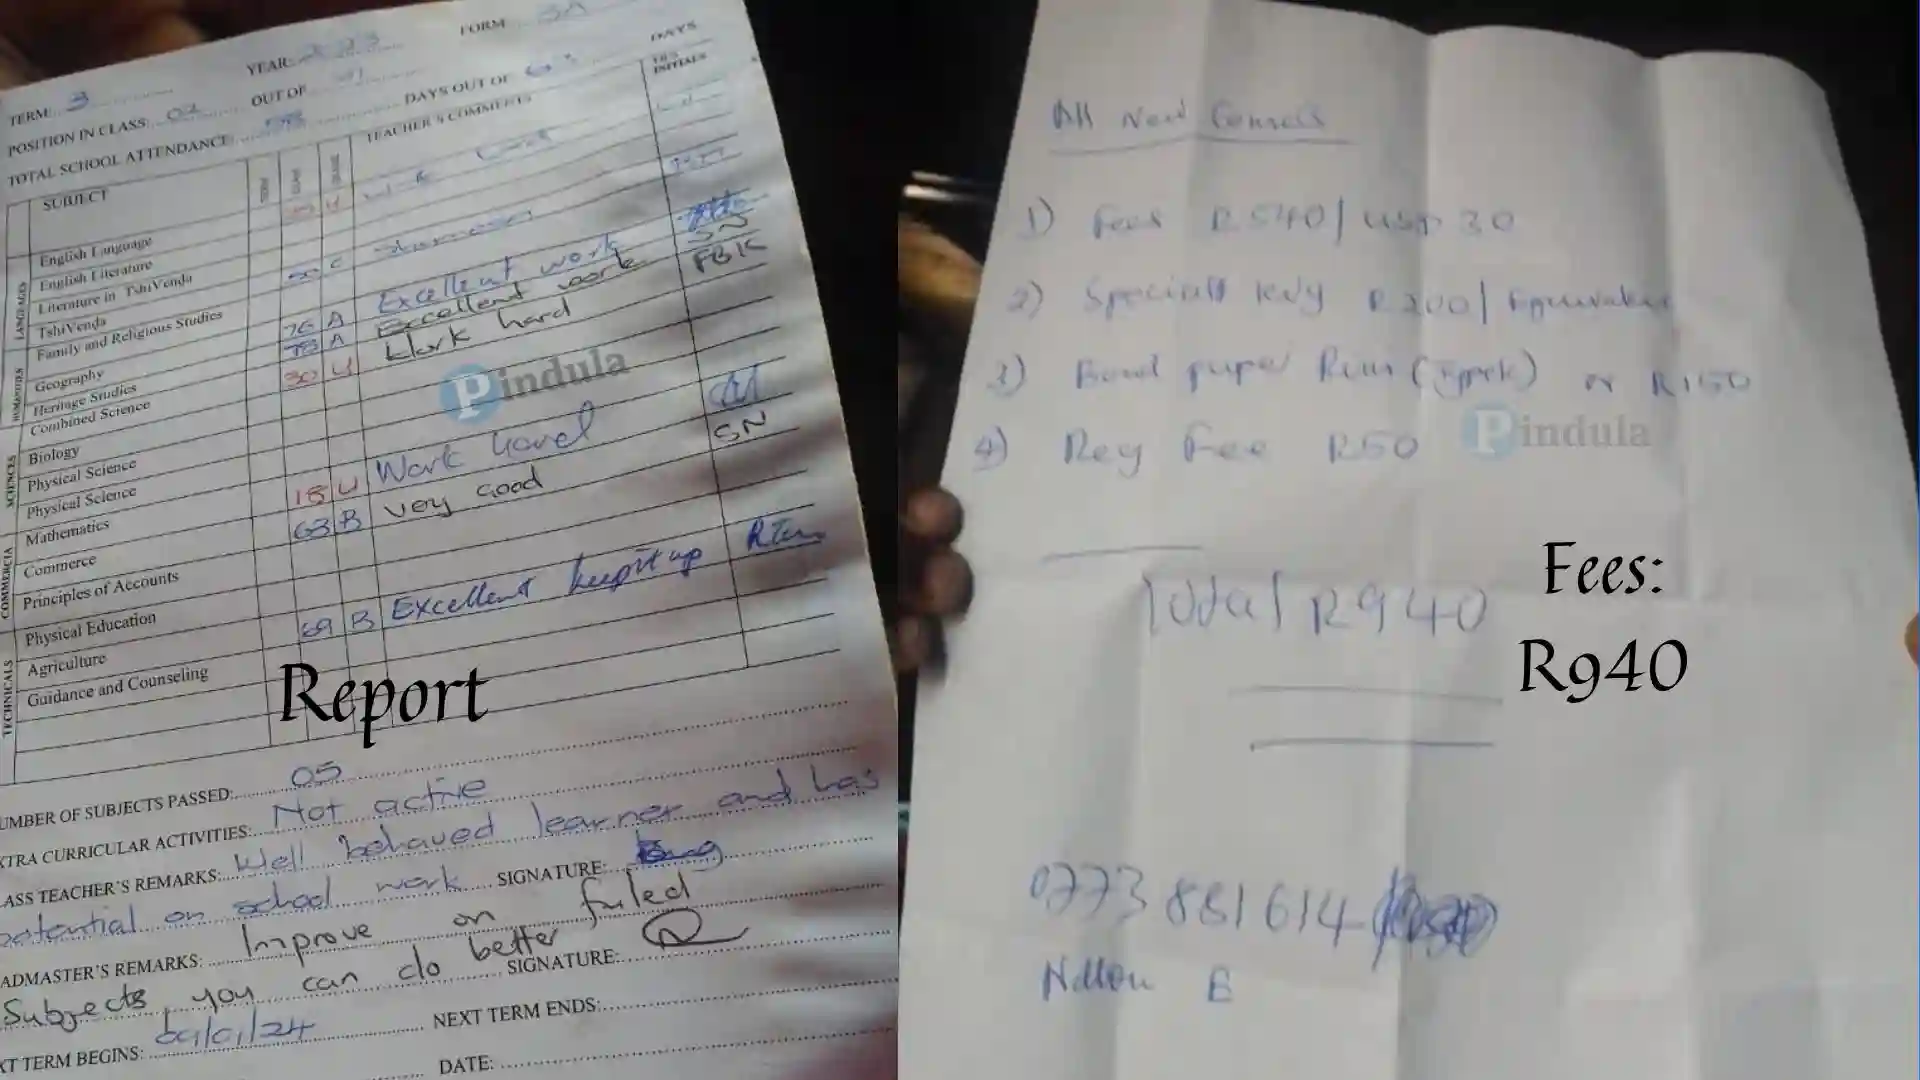 YEAR: 2023
FORM 3A
TERM: 3
POSITION IN CLASS: 02
OUT OF
TOTAL SCHOOL ATTENDANCE:
DAYS OUT OF 63 DAYS
SUBJECT
TEACHER'S COMMENTS
INITIALS
LANGUAGES
English Language U
English Literature
Literature in TshiVenda
TshiVenda 50 C
Family and Religious Studies
HUMANITIES
Geography 76 A Excellent work
Heritage Studies 78 A Excellent work SN
Combined Science 30 U Work hard FBK
SCIENCES
Biology
Physical Science
Physical Science
Mathematics 18 U Work hard
COMMERCIA
Commerce 63 B very Good SN
Principles of Accounts
TECHNICALS
Physical Education
Agriculture 69 B Excellent keep it up
Guidance and Counseling
Report
UMBER OF SUBJECTS PASSED: 05
XTRA CURRICULAR ACTIVITIES: Not active
ASS TEACHER'S REMARKS: Well behaved learner and has
potential on school work SIGNATURE:
ADMASTER'S REMARKS: Improve on failed
Subjects, you can do better SIGNATURE:
XT TERM BEGINS: 09/01/24 NEXT TERM ENDS:
DATE:
Pindula
All New Comers
1) Fees R540/ USD 30
2) R200/ Equivalent
3) Bond paper or R150
4) Reg Fee R50
Pindula
Total R940
Fees:
R940
0773 881614
E